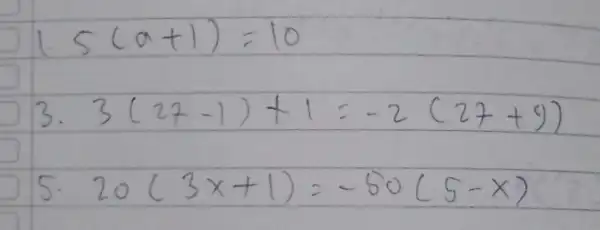 1. 5(a+1) = 10
3. 3(27-1)+1 = -2(27+9)
5. 20(3x+1) = -50(5-x)